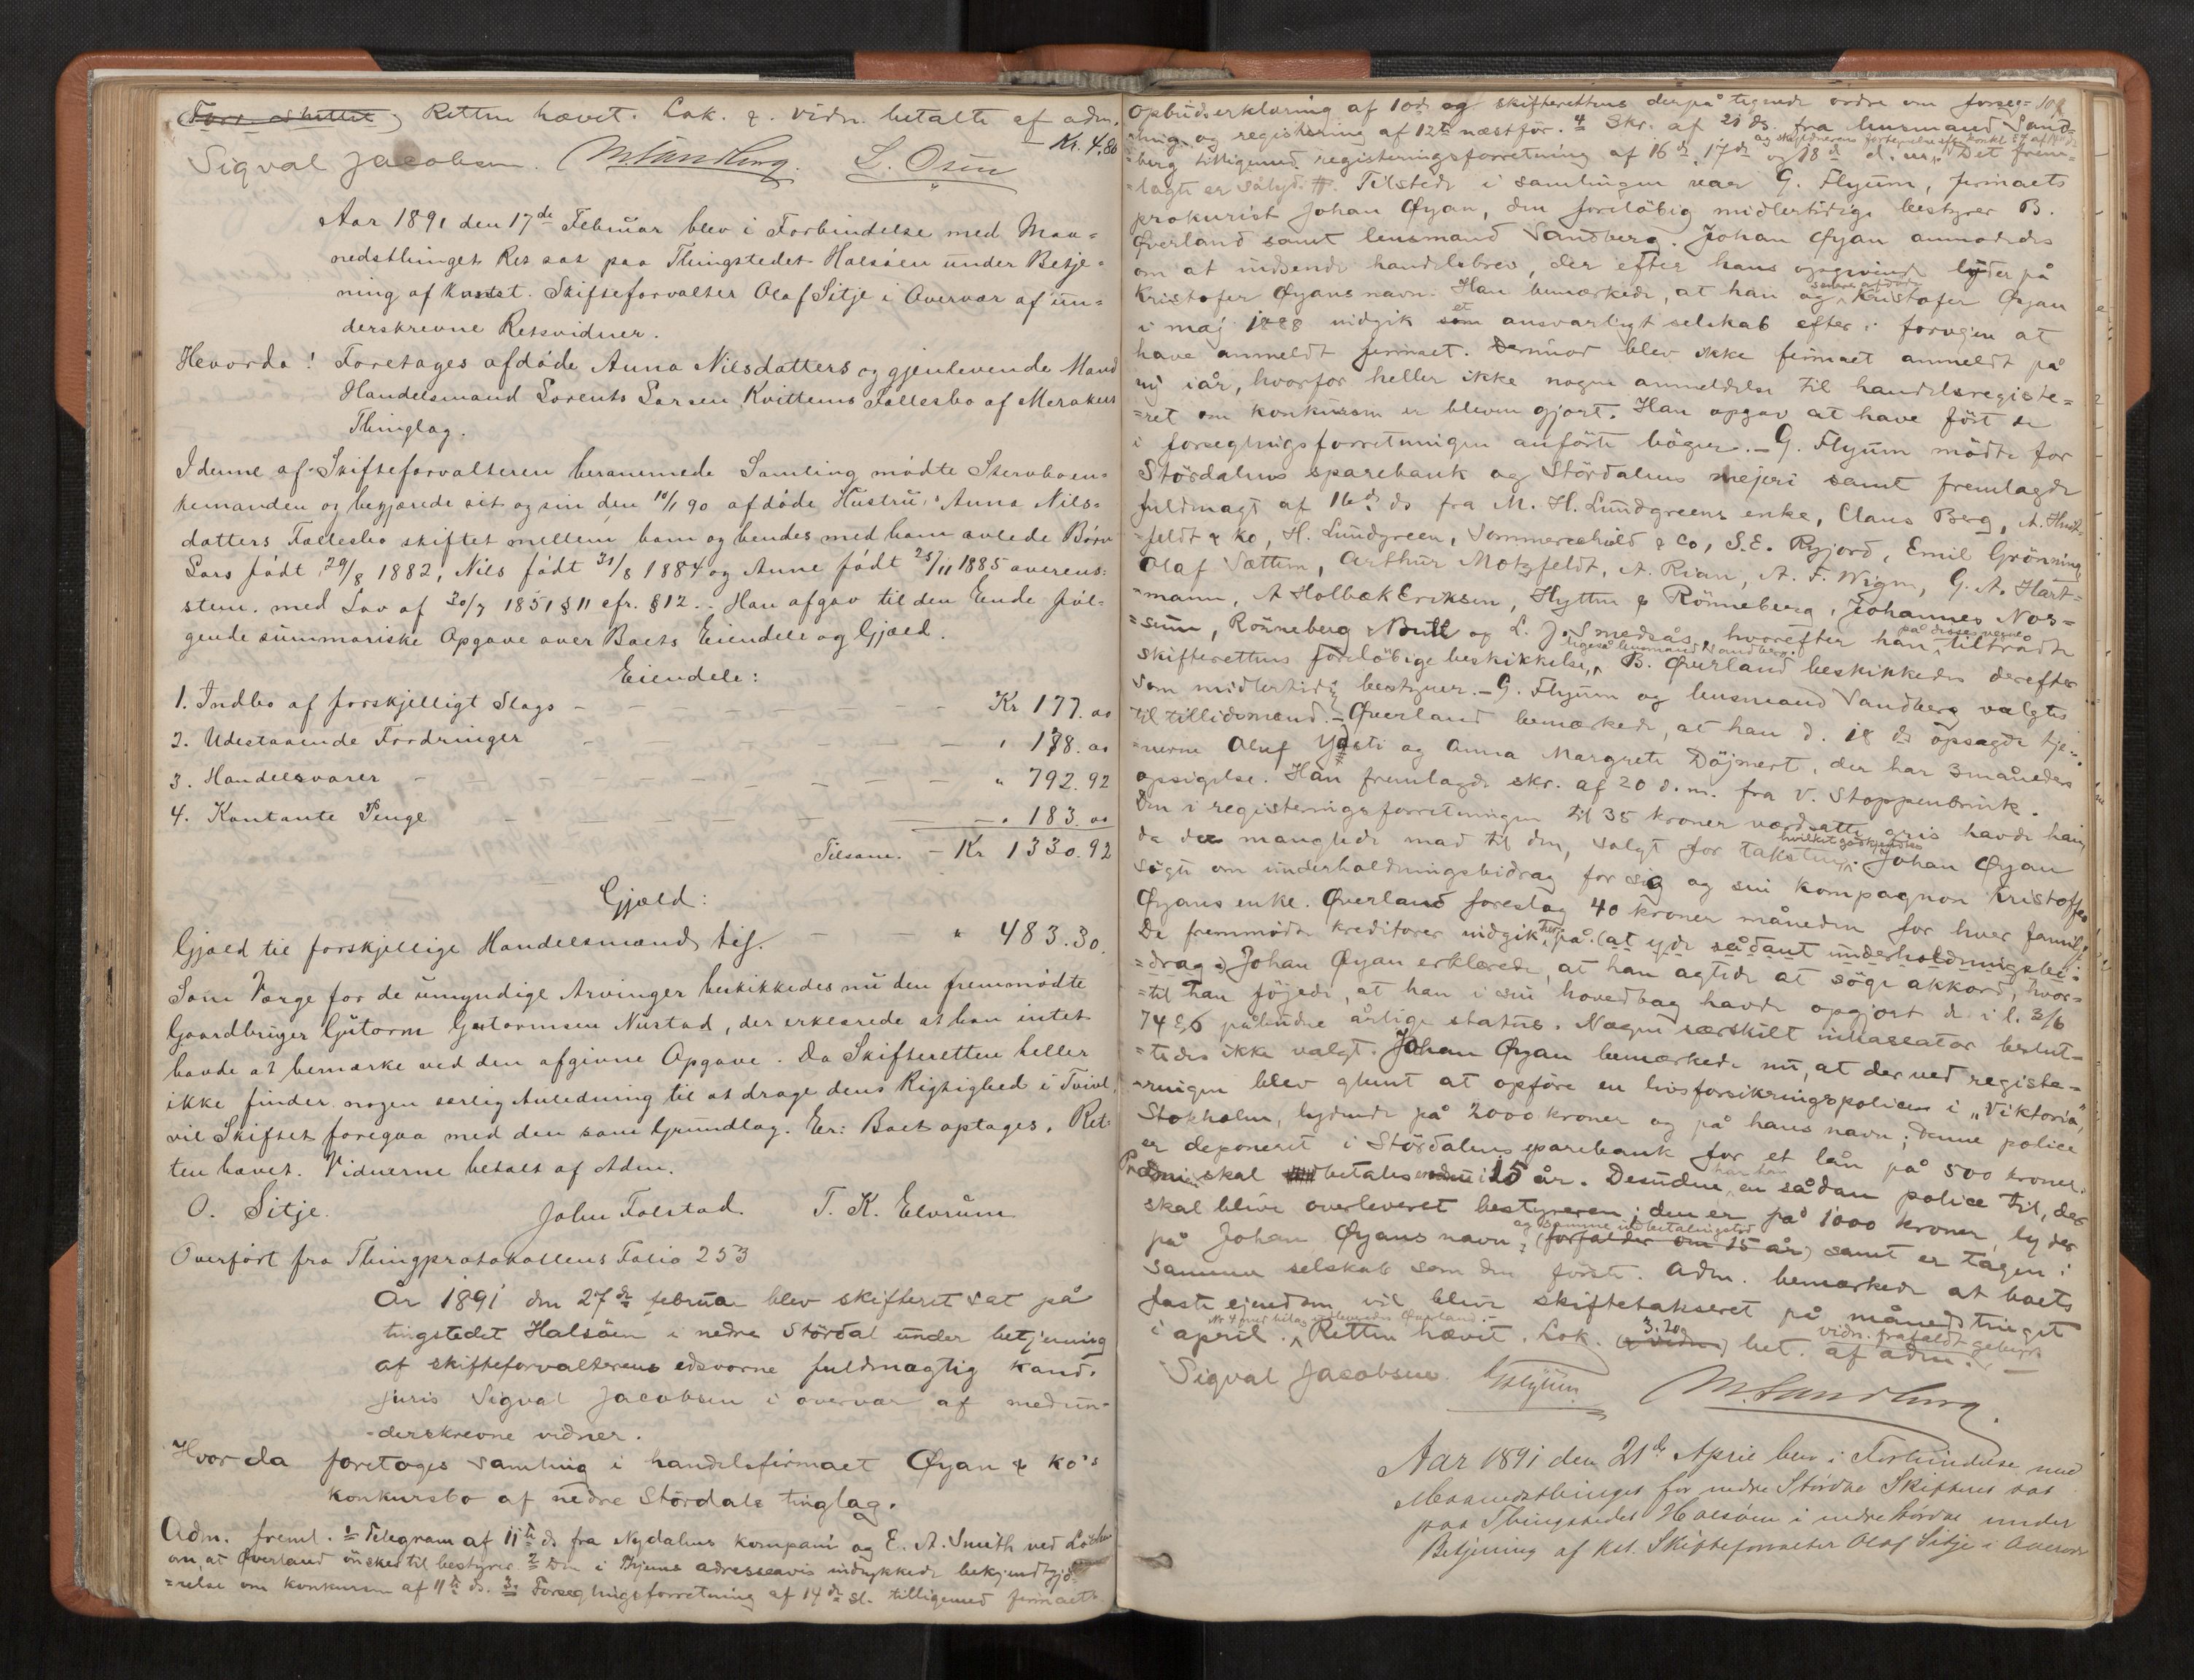 (Forr. sluttet) Retten hævet. Lok. & vidn. betalte af adm.
Kr. 4.80
Sigval Jacobsen. M Sandberg. L. Osen
Aar 1891 den 17de Februar blev i Forbindelse med Maa=
nedsthinget Ret sat paa Thingstedet Halsöen under Betje=
ning af Konst. Skifteforvalter Olaf Sitje i Overvær af un=
derskrevne Retsvidner.
Hvorda! Foretages afdöde Anna Nilsdatters og gjenlevende Mand
Handelsmand Lorents Larsen Kvittems Fællesbo af Merakers
Thinglag.
I denne af Skifteforvalteren berammede Samling mödte Stervboen=
kemanden og begjærede sit og sin den 10/1 90 afdöde Hustru Anna Nils=
datters Fællesbo skiftet mellem ham og hendes med ham avlede Börn
Lars födt 29/8 1882, Nils födt 31/8 1884 og Anne födt 25/11 1885 overens=
stem. med Lov af 30/7 1851 § 11 cfr. § 12. Han afgav til den Ende föl=
gende summariske Opgave over Boets Eiendele og Gjæld.
Eiendele:
1. Indbo af forskjelligt Slags - Kr 177.00
2. Udestaaende Fordringer - " 178.00
3. Handelsvarer - " 792.92
4. Kontante Penge - " 183.00
Tilsam. - Kr 1330.92
Gjæld:
Gjæld til forskjellige Handelsmænd tils. - " 483.30.
Som Værge for de umyndige Arvinger beskikkedes nu den fremmödte
Gaardbruger Gutorm Gutormsen Nustad, der erklærede at han intet
havde at bemærke ved den afgivne Opgave. Da Skifteretten heller
ikke finder nogen særlig Anledning til at drage dens Rigtighed i Tvivl,
vil Skiftet foregaa med den som Grundlag. Er: Boet optages. Ret=
ten hævet. Vidnerne betalt af Adm.
O. Sitje. John Folstad. T. K. Elvrum
Overfört fra Thingprotokollens Folio 253
År 1891 den 27de februar blev skifteret sat på
tingstedet Halsöen i nedre Stördal under betjening
af skifteforvalterens edsvorne fuldmægtig kand.
juris Sigval Jacobsen i overvær af medun=
=derskrevne vidner.
Hvor da foretoges samling i handelsfirmaet Øyan & Ko's
konkursbo af nedre Stördals tinglag.
Adm. freml. 1 Telegram af 11te ds. fra Nydalens kompani og E. A. Smith ved
om, at Øverland önskes til bestyrer 2 Den i Thjems adresseavis indrykkede bekjendtgjö=
=relse om konkursen af 11te ds. 3 Forseglingsforretning af 14de sl. tilligemed firmaets
opbudserklæring af 10de og skifterettens derpå tegnede ordre om forseg=
ring og registering af 12te næstför. 4 Skr. af 21 ds. fra lensmand Sand=
berg tilligemed registeringsforretning af 16de, 17de og 18de d. m. Det frem=
=lagte er sålyd. #. Tilstede i samlingen var G. Flyum, firmaets
prokurist Johan Øyan, den foreløbig midlertidige bestyrer B.
Øverland samt lensmand Sandberg. Johan Øyan anmodedes
om at indsende handelsbrev, der efter hans opgivende lyder på
Kristofer Øyans navn. Han bemærkede, at han og senere afdöde Kristofer Øyan
i maj 1888 indgik et ansvarligt selskab efter i forvejen at
have anmeldt firmaet. Derimod blev ikke firmaet anmeldt på
ny iår, hvorfor heller ikke nogen anmeldelse til handelsregiste=
=ret om konkursen er bleven gjort. Han opgav at have fört de
i forseglingsforretningen anförte böger. - G. Flyum mödte for
Stördalens sparebank og Stördalens mejeri samt fremlagde
fuldmagt af 16de ds fra M. H. Lundgreens enke, Claus Berg, A. Huit=
=feldt & Ko, H. Lundgreen, Sommerschild & Co, S. E. Ryjord, Emil Grönning,
Olaf Sættem, Arthur Motzfeldt, A. Rian, A. F. Wigen, G. A. Hart=
=mann, A Holbæk Eriksen, Hytten & Rönneberg, Johannes Nos=
=sum, Rönneberg & Bull og L. J. Smedsås, hvorefter han på disses vegne tiltrådte
skifterettens foreløbige beskikkelse, ligeså lensmand Sandberg. B. Øverland beskikkedes derefter
som midlertidig bestyrer. - G. Flyum og lensmand Sandberg valgtes
til tillidsmænd. - Øverland bemærkede, at han d. 18 ds opsagde tje=
=nerne Oluf og Anna Margrete Döjmert, der har 3 måneders
opsigelse. Han fremlagde skr. af 20 d. m. fra V. Stoppenbrink.
Den i registeringsforretningen til 35 kroner værdsatte gris havde han,
da der manglede mad til den, solgt for taksten, hvilket godkjendtes. Johan Øyan
sögte om underholdningsbidrag for sig og sin kompagnon Kristoffer
Øyans enke. Øverland foreslog 40 kroner måneden for hver famili.
De fremmödte kreditorer indgik på (at yde sådant underholdningsbi=
=drag.) Johan Øyan erklærede, at han agtede at söge akkord, hvor=
=til han föjede, at han i sin hovedbog havde opgjort de i l. 3/6
74 § 6 påbudne årlige status. Nogen særskilt inkassator beslut=
=tedes ikke valgt. Johan Øyan bemærkede nu, at der ved registe=
=ringen blev glemt at opföre en livsforsikringspolicen i "Viktoria",
Stokholm, lydende på 2000 kroner og på hans navn; denne police
er deponeret i Stördalens sparebank for et lån på 500 kroner.
Præmien skal betales i 15 år. Desuden har han en sådan police til, der
skal blive overleveret bestyreren; den er på 1000 kroner, lyder
på Johan Øyans navn og samme indbetalingstid (forfalder om 15 år) samt er tagen i
samme selskab som den förste. Adm. bemærkede at boets
faste ejendom vil blive skiftetakseret på månedstinget
i april. Retten hævet. Lok. 3.20 (& vidn.) bet. af adm. vidn. frafaldt gebyr.
Sigval Jacobsen. GFlyum. M. Sandberg.
Aar 1891 den 21de April blev i Forbindelse med
Maanedsthinget for nedre Stördal Skifteret sat
paa Thingstedet Halsöen i nedre Stördal under
Betjening af Kst. Skifteforvalter Olaf Sitje i Overvær